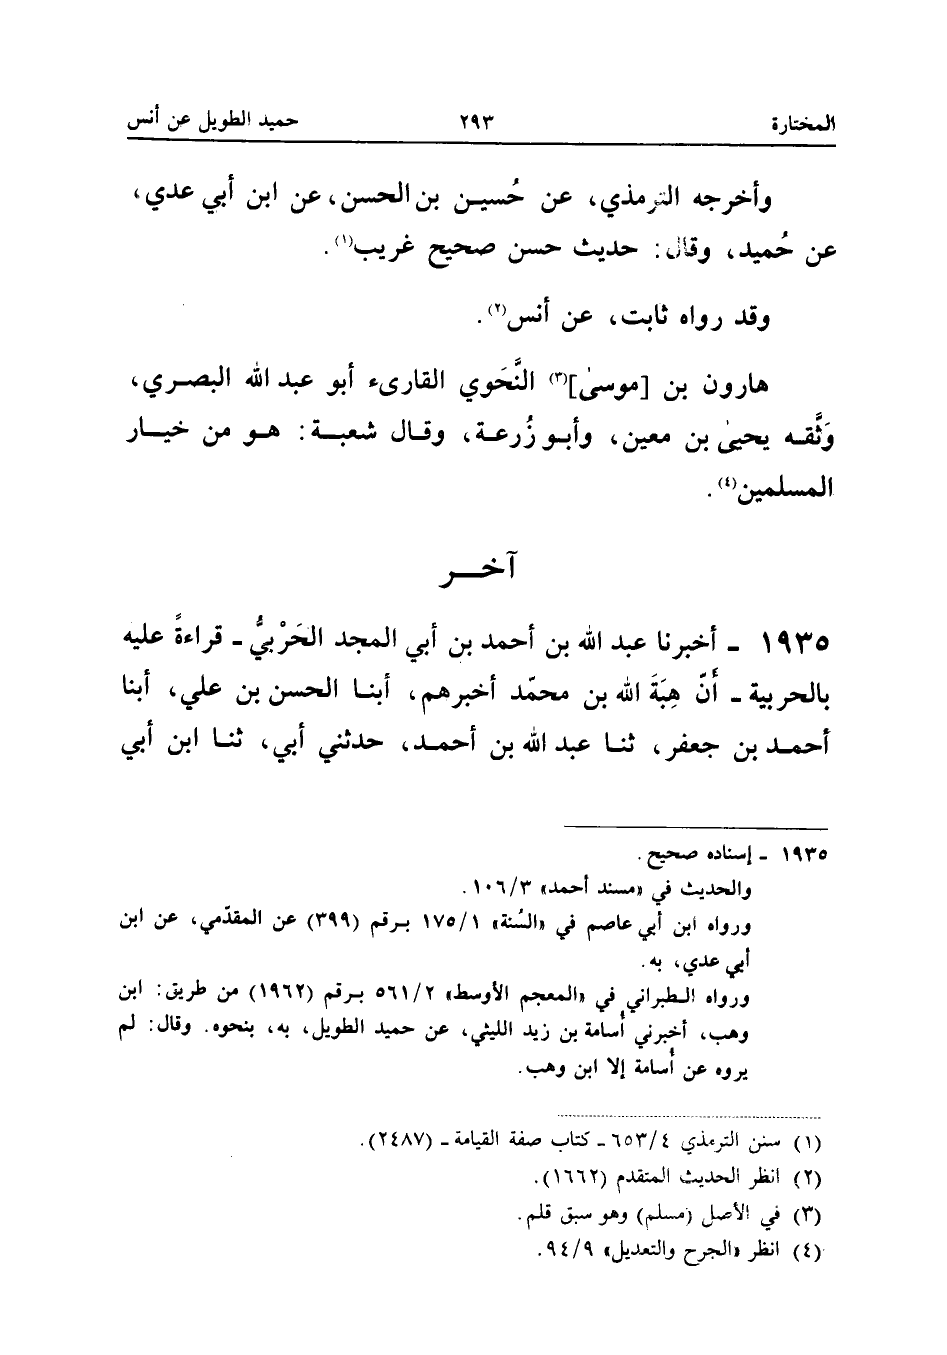 المختارة ٢٩٣ حميد الطويل عن أنس
وأخرجه الترمذي، عن حُسين بن الحسن، عن ابن أبي عدي،
عن حُميد، وقال: حديث حسن صحيح غريب(١).
وقد رواه ثابت، عن أنس(٢).
هارون بن [موسىٰ](٣) النَّحَوي القارىء أبو عبد الله البصري،
وَثَّقه يحيىٰ بن معين، وأبو زُرعة، وقال شعبة: هو من خيار
المسلمين(٤).
آخر
١٩٣٥ - أخبرنا عبد الله بن أحمد بن أبي المجد الحَرْبيُّ - قراءةً عليه
بالحربية - أَنّ هِبَةَ الله بن محمّد أخبرهم، أبنا الحسن بن علي، أبنا
أحمد بن جعفر، ثنا عبد الله بن أحمد، حدثني أبي، ثنا ابن أبي
١٩٣٥ - إسناده صحيح.
والحديث في «مسند أحمد» ١٠٦/٣.
ورواه ابن أبي عاصم في «السُنة» ١٧٥/١ برقم (٣٩٩) عن المقدّمي، عن ابن
أبي عدي، به.
ورواه الطبراني في «المعجم الأوسط» ٥٦١/٢ برقم (١٩٦٢) من طريق: ابن
وهب، أخبرني أُسامة بن زيد الليثي، عن حميد الطويل، به، بنحوه. وقال: لم
يروه عن أُسامة إلا ابن وهب.
(١) سنن الترمذي ٦٥٣/٤ - كتاب صفة القيامة - (٢٤٨٧).
(٢) انظر الحديث المتقدم (١٦٦٢).
(٣) في الأصل (مسلم) وهو سبق قلم.
(٤) انظر «الجرح والتعديل» ٩٤/٩.